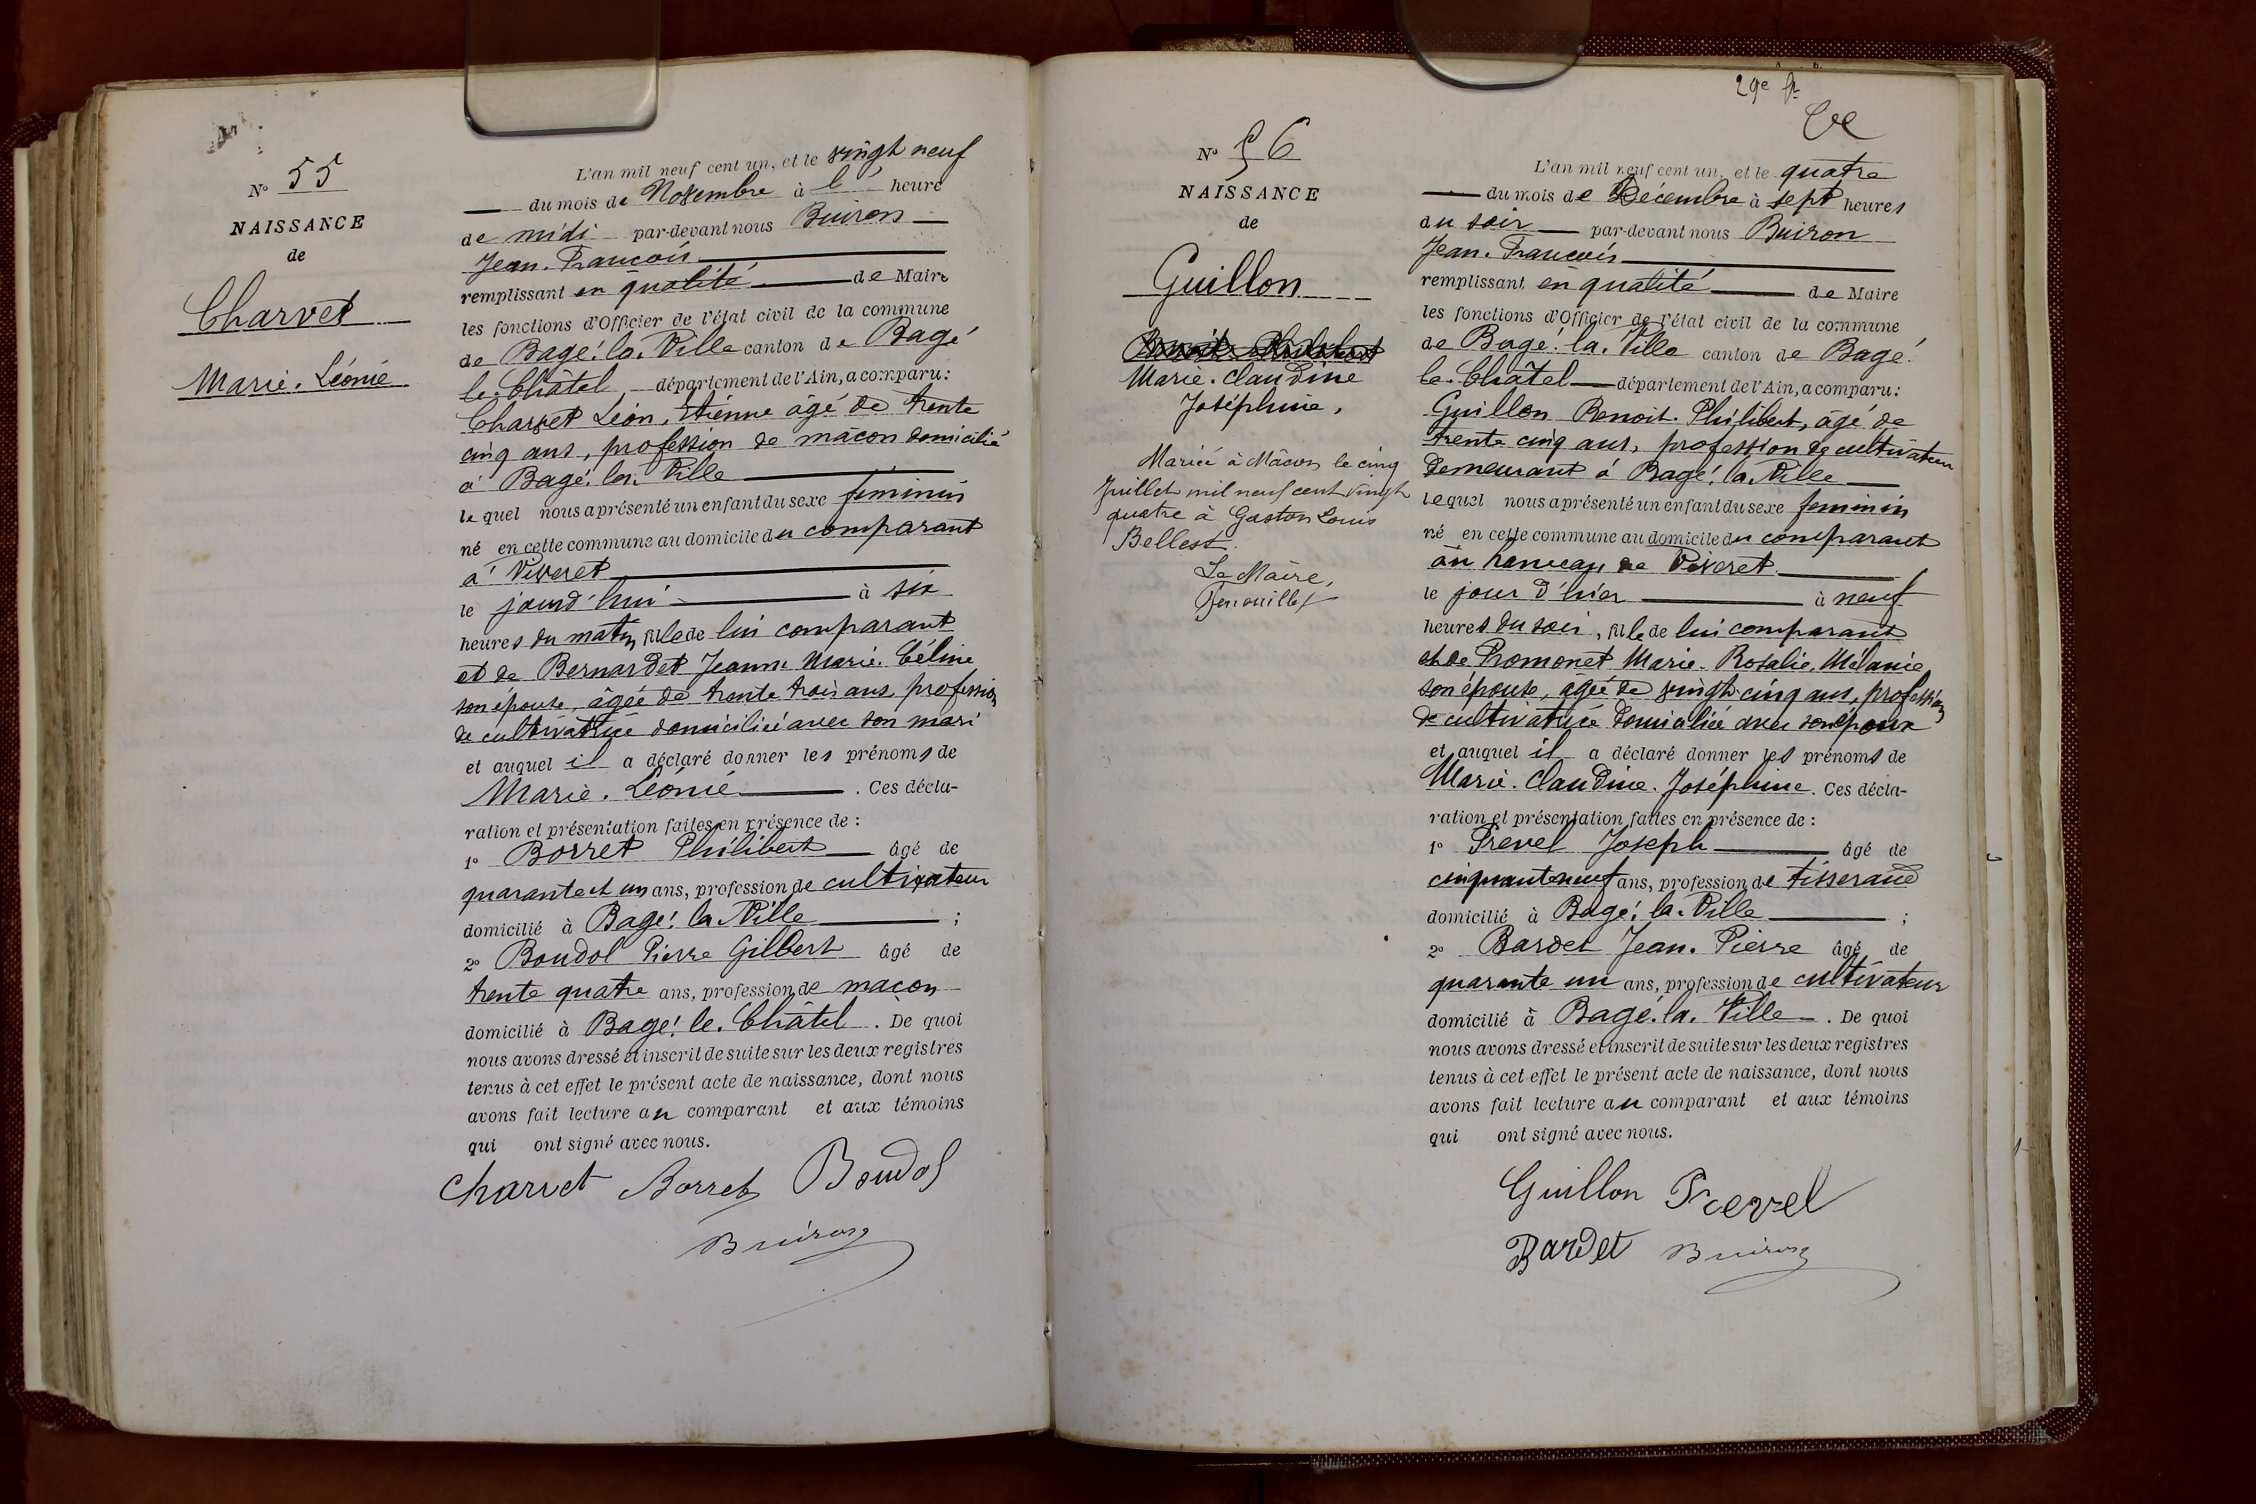 N° 55
NAISSANCE
de
Charvet
Marie. Léonie
L'an mil neuf cent un, et le vingt neuf
du mois de Novembre à l' heure
de midi par-devant nous Buiron
Jean. François
remplissant en qualité de Maire
les fonctions d'Officier de l'état civil de la commune
de Bagé. la. Ville canton de Bagé
le. Châtel département de l'Ain, a comparu:
Charvet Léon, Etienne âgé de trente
cinq ans, profession de mâcon domicilié
à Bagé. la. Ville
lequel nous a présenté un enfant du sexe feminin
né en cette commune au domicile du comparant
à Viveret
le jourd'hui à six
heures du matin, fille de lui comparant
et de Bernardet Jeanne Marie. Céline
son épouse, âgée de trente trois ans, profession
de cultivatrice domiciliée avec son mari
et auquel il a déclaré donner les prénoms de
Marie. Léonie. Ces décla-
ration et présentation faites en présence de:
1° Borret Philibert âgé de
quarante et un ans, profession de cultivateur
domicilié à Bagé. la Ville ;
2° Boudol Pierre Gilbert âgé de
trente quatre ans, profession de maçon
domicilié à Bagé. le. Châtel. De quoi
nous avons dressé et inscrit de suite sur les deux registres
tenus à cet effet le présent acte de naissance, dont nous
avons fait lecture au comparant et aux témoins
qui ont signé avec nous.
Charvet Borret Boudol
Buiron
29e
N° 56
NAISSANCE
de
Guillon
Marie. Claudine
Joséphine,
Mariée à Mâcon le cinq
Juillet mil neuf cent vingt
quatre à Gaston Louis
Bellest.
Le Maire,
L'an mil neuf cent un, et le quatre
du mois de Décembre à sept heures
du soir par-devant nous Buiron
Jean. François
remplissant en qualité de Maire
les fonctions d'Officier de l'état civil de la commune
de Bagé. la. Ville canton de Bagé.
le. Châtel département de l'Ain, a comparu:
Guillon Benoit. Philibert, âgé de
trente cinq ans, profession de cultivateur
demeurant à Bagé. la. Ville
lequel nous a présenté un enfant du sexe feminin
né en cette commune au domicile du comparant
au hameau de Viveret
le jour d'hier à neuf
heures du soir, fille de lui comparant
et de Promonet Marie. Rosalie. Mélanie
son épouse, âgée de vingt cinq ans, profession
de cultivatrice domiciliée avec son époux
et auquel il a déclaré donner les prénoms de
Marie. Claudine. Joséphine. Ces décla-
ration et présentation faites en présence de:
1° Prevel Joseph âgé de
cinquante neuf ans, profession de tisserand
domicilié à Bagé. la. Ville ;
2° Bardet Jean. Pierre âgé de
quarante un ans, profession de cultivateur
domicilié à Bagé. la. Ville. De quoi
nous avons dressé et inscrit de suite sur les deux registres
tenus à cet effet le présent acte de naissance, dont nous
avons fait lecture au comparant et aux témoins
qui ont signé avec nous.
Guillon Prevel
Bardet Buiron